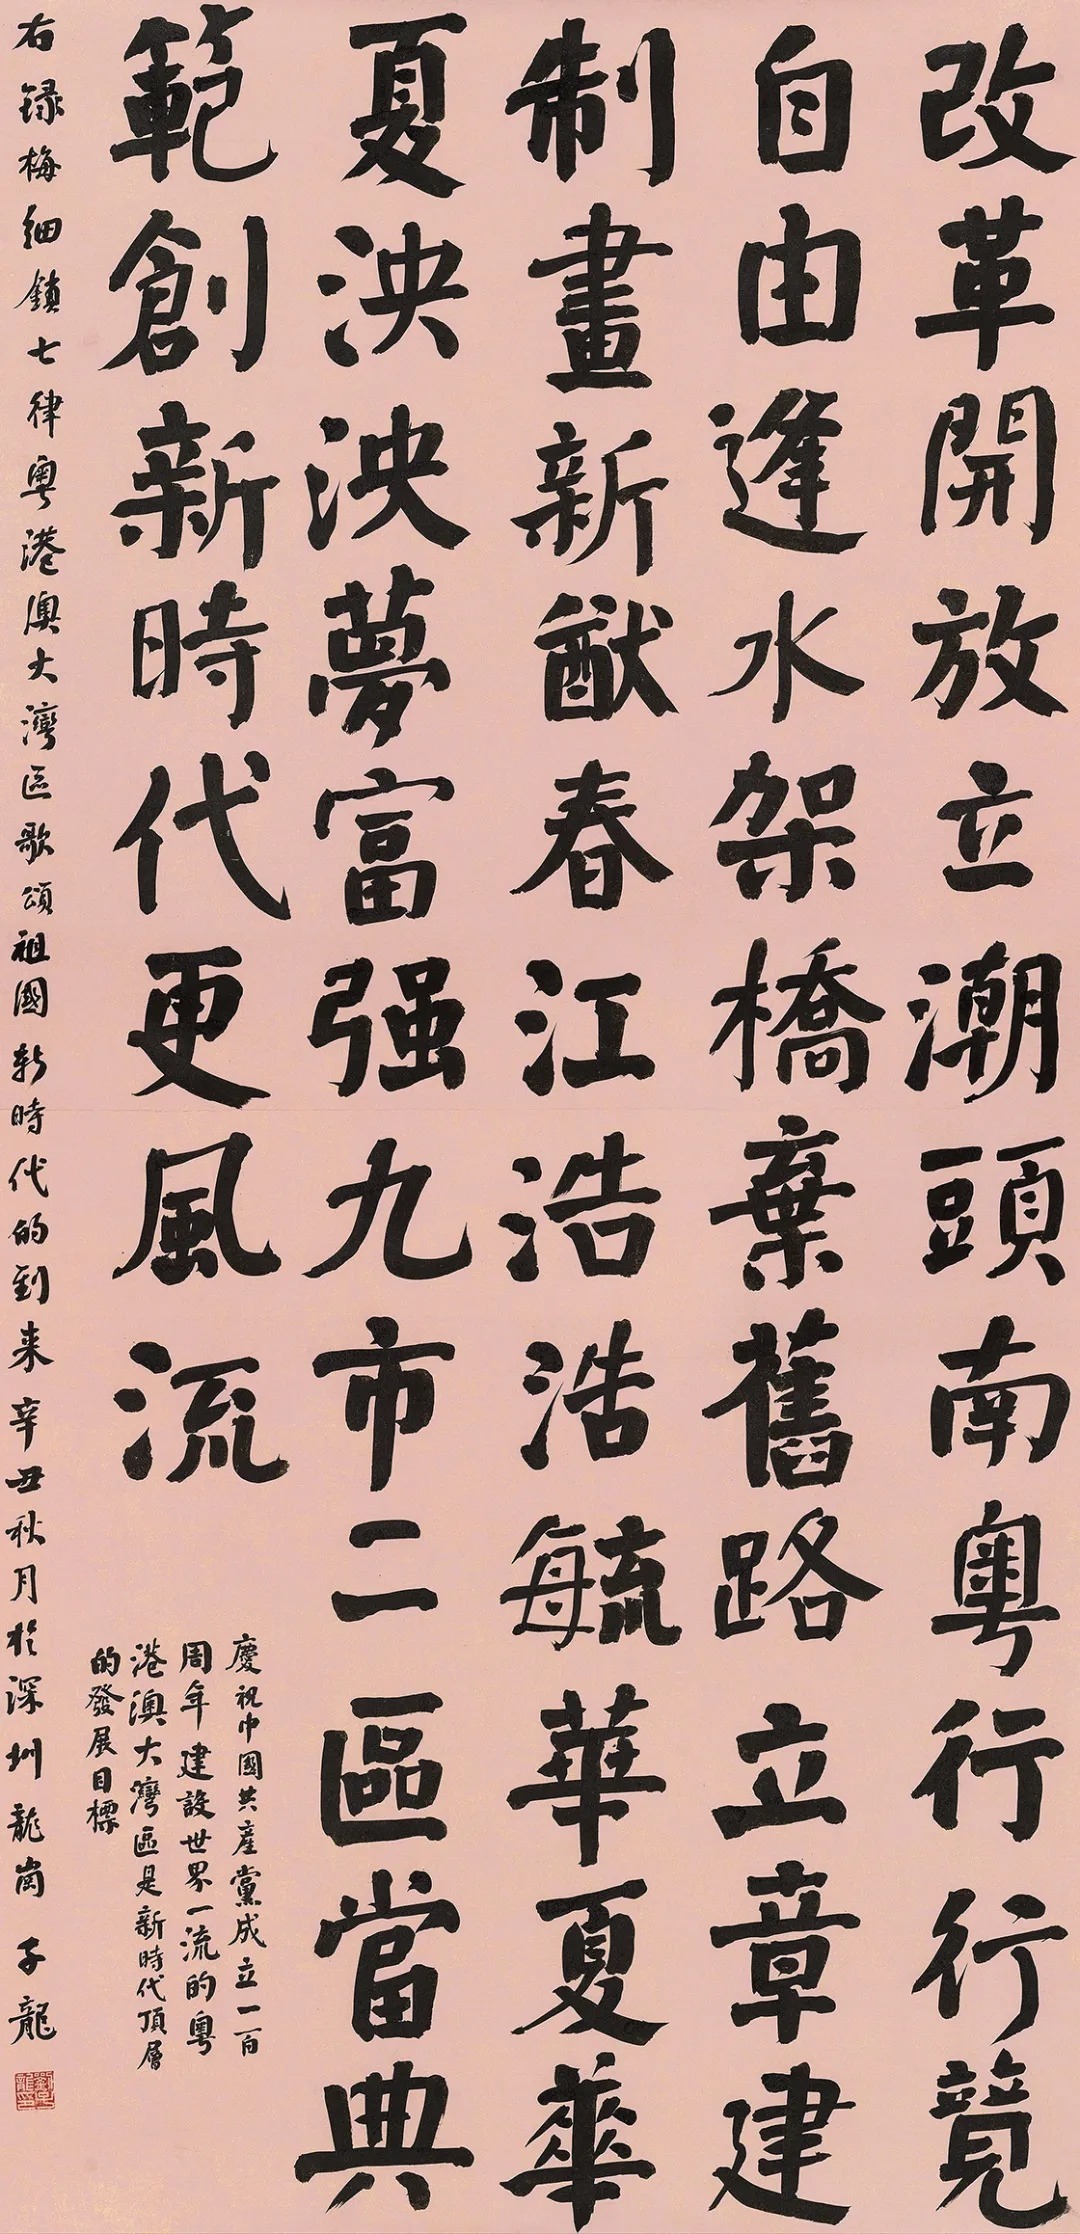 改革開放立潮頭南粤行行競
自由逢水架橋棄舊路立章建
制畫新猷春江浩浩毓華夏華
夏泱泱夢富强九市二區當典
範創新時代更風流
慶祝中國共產黨成立一百
周年建設世界一流的粤
港澳大灣區是新時代頂層
的發展目標
右録梅細鎖七律粤港澳大灣區歌頌祖國新時代的到来辛丑秋月於深圳龍崗子龍